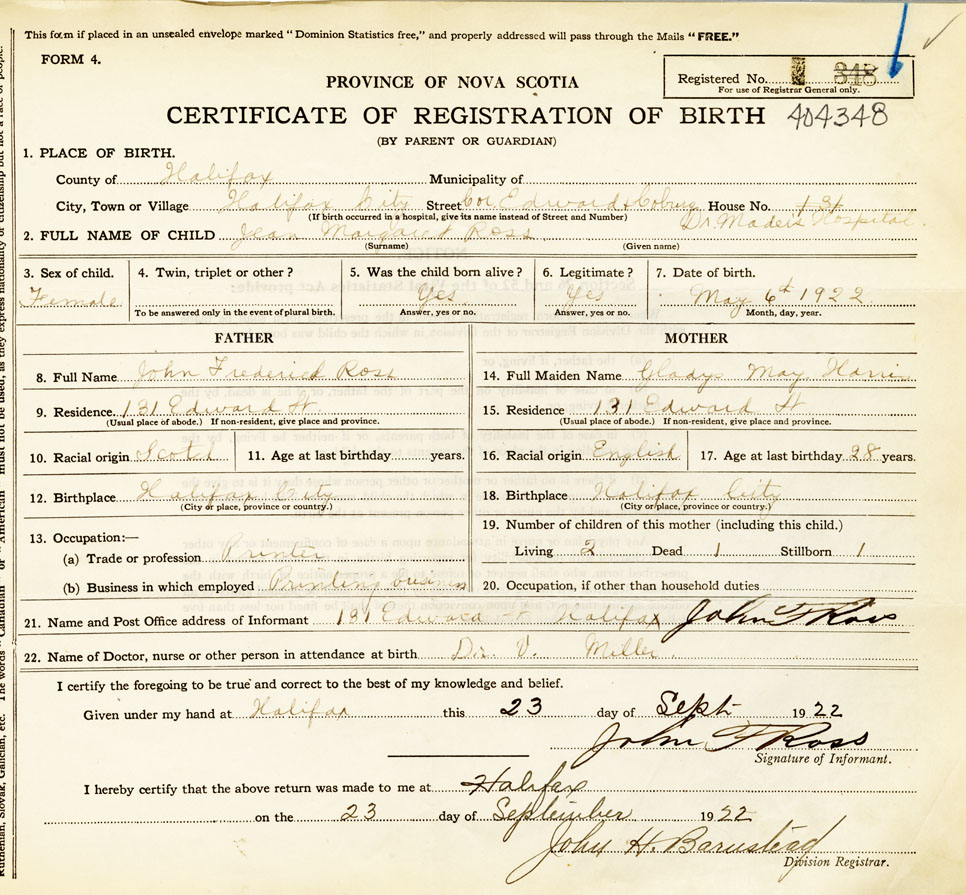 This form if placed in an unsealed envelope marked "Dominion Statistics free," and properly addressed will pass through the Mails "FREE."
FORM 4.
Registered No. 348
For use of Registrar General only.
PROVINCE OF NOVA SCOTIA
CERTIFICATE OF REGISTRATION OF BIRTH 404348
(BY PARENT OR GUARDIAN)
1. PLACE OF BIRTH.
County of Halifax Municipality of
City, Town or Village Halifax City Street Cor. Edward & Coburg House No.
(If birth occurred in a hospital, give its name instead of Street and Number) Dr. Maders Hospital
2. FULL NAME OF CHILD Jean Margaret Ross
(Surname) (Given name)
3. Sex of child. 4. Twin, triplet or other? 5. Was the child born alive? 6. Legitimate? 7. Date of birth.
Female Yes Yes May 6th 1922
To be answered only in the event of plural birth. Answer, yes or no. Answer, yes or no. Month, day, year.
FATHER
8. Full Name John Frederick Ross
9. Residence. 131 Edward St.
(Usual place of abode.) If non-resident, give place and province.
10. Racial origin Scotch 11. Age at last birthday years.
12. Birthplace Halifax City
(City or place, province or country.)
13. Occupation:—
(a) Trade or profession Printer
(b) Business in which employed Printing business
MOTHER
14. Full Maiden Name Gladys May Harris
15. Residence 131 Edward St
(Usual place of abode.) If non-resident, give place and province.
16. Racial origin English 17. Age at last birthday 28 years.
18. Birthplace Halifax City
(City or place, province or country.)
19. Number of children of this mother (including this child.)
Living 2 Dead 1 Stillborn 1
20. Occupation, if other than household duties
21. Name and Post Office address of Informant 131 Edward St Halifax John F Ross
22. Name of Doctor, nurse or other person in attendance at birth Dr. V. Miller.
I certify the foregoing to be true and correct to the best of my knowledge and belief.
Given under my hand at Halifax this 23 day of Sept. 1922
John F Ross
Signature of Informant.
I hereby certify that the above return was made to me at Halifax
on the 23 day of September 1922
John H. Barnstead
Division Registrar.